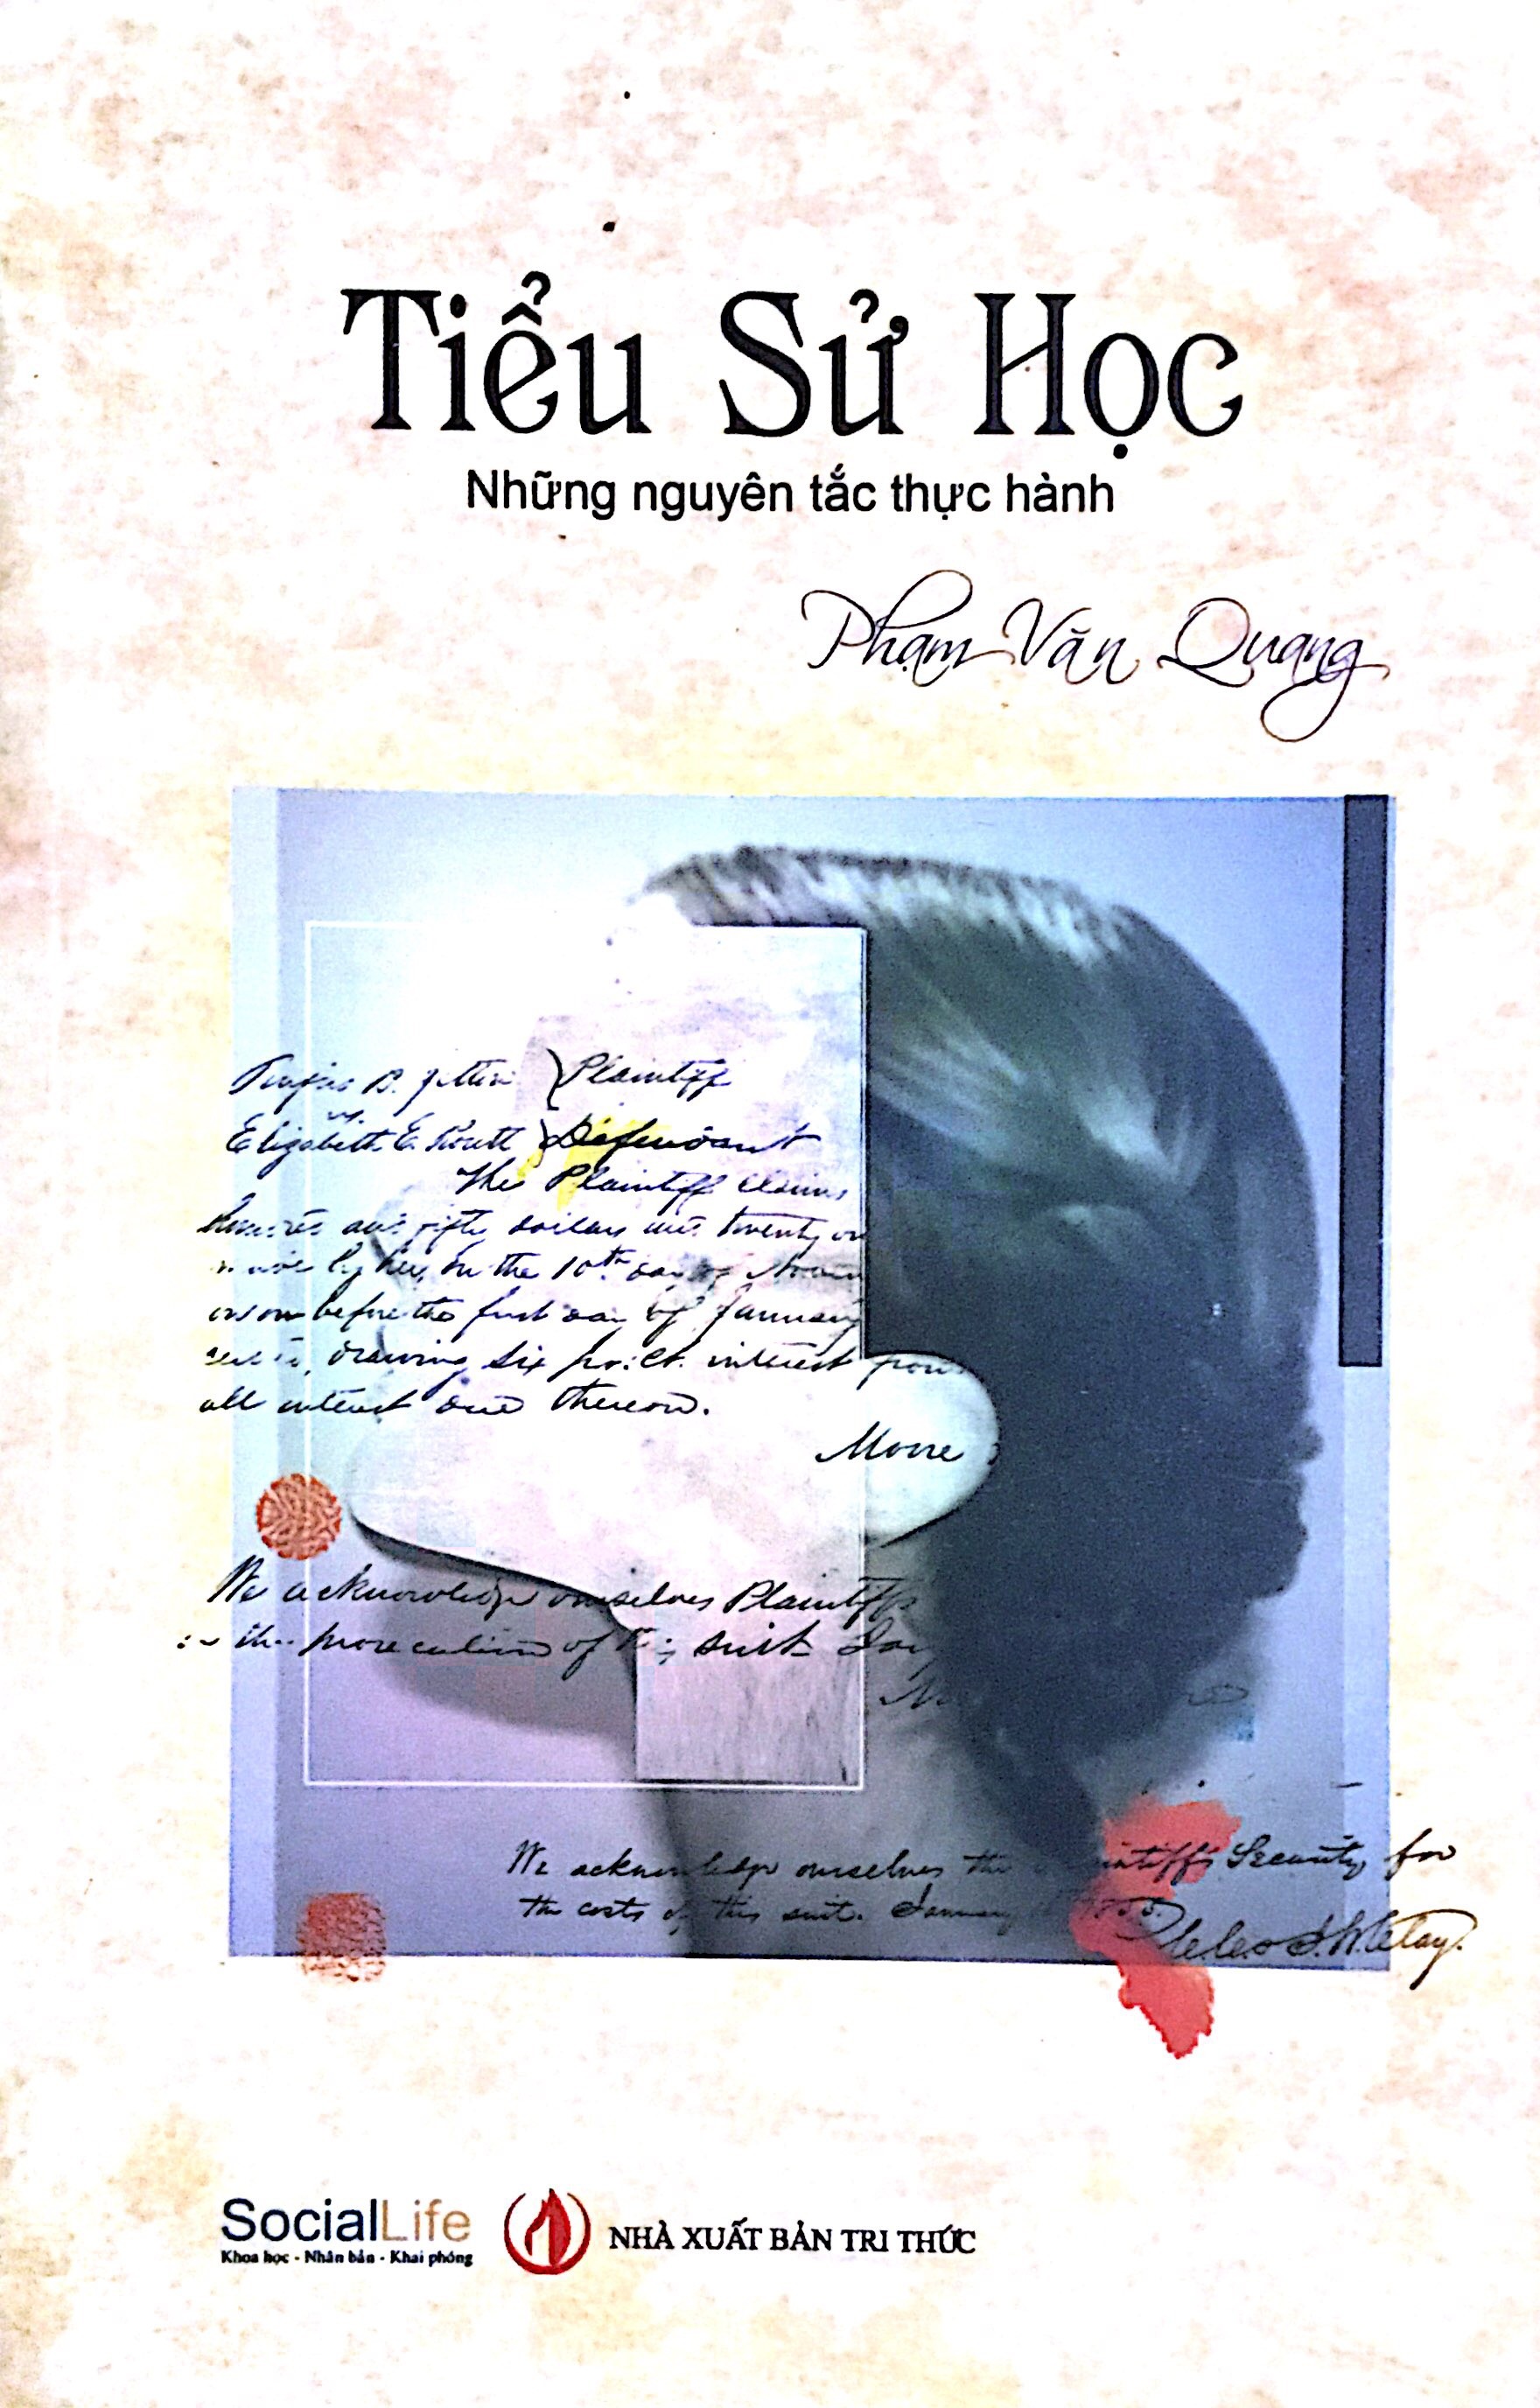 Tiểu Sử Học
Những nguyên tắc thực hành
Phạm Văn Quang
Plaintiff
vs.
Elizabeth E. Defendant
The Plaintiff claims
fifty dollars twenty
on the 10th day of
before the first day of January
drawing six interest from
all interest due thereon.
Moore
We acknowledge ourselves Plaintiffs
in the prosecution of suit
We acknowledge ourselves the Security for
the costs of this suit. January
SocialLife
Khoa học - Nhân bản - Khai phóng
NHÀ XUẤT BẢN TRI THỨC